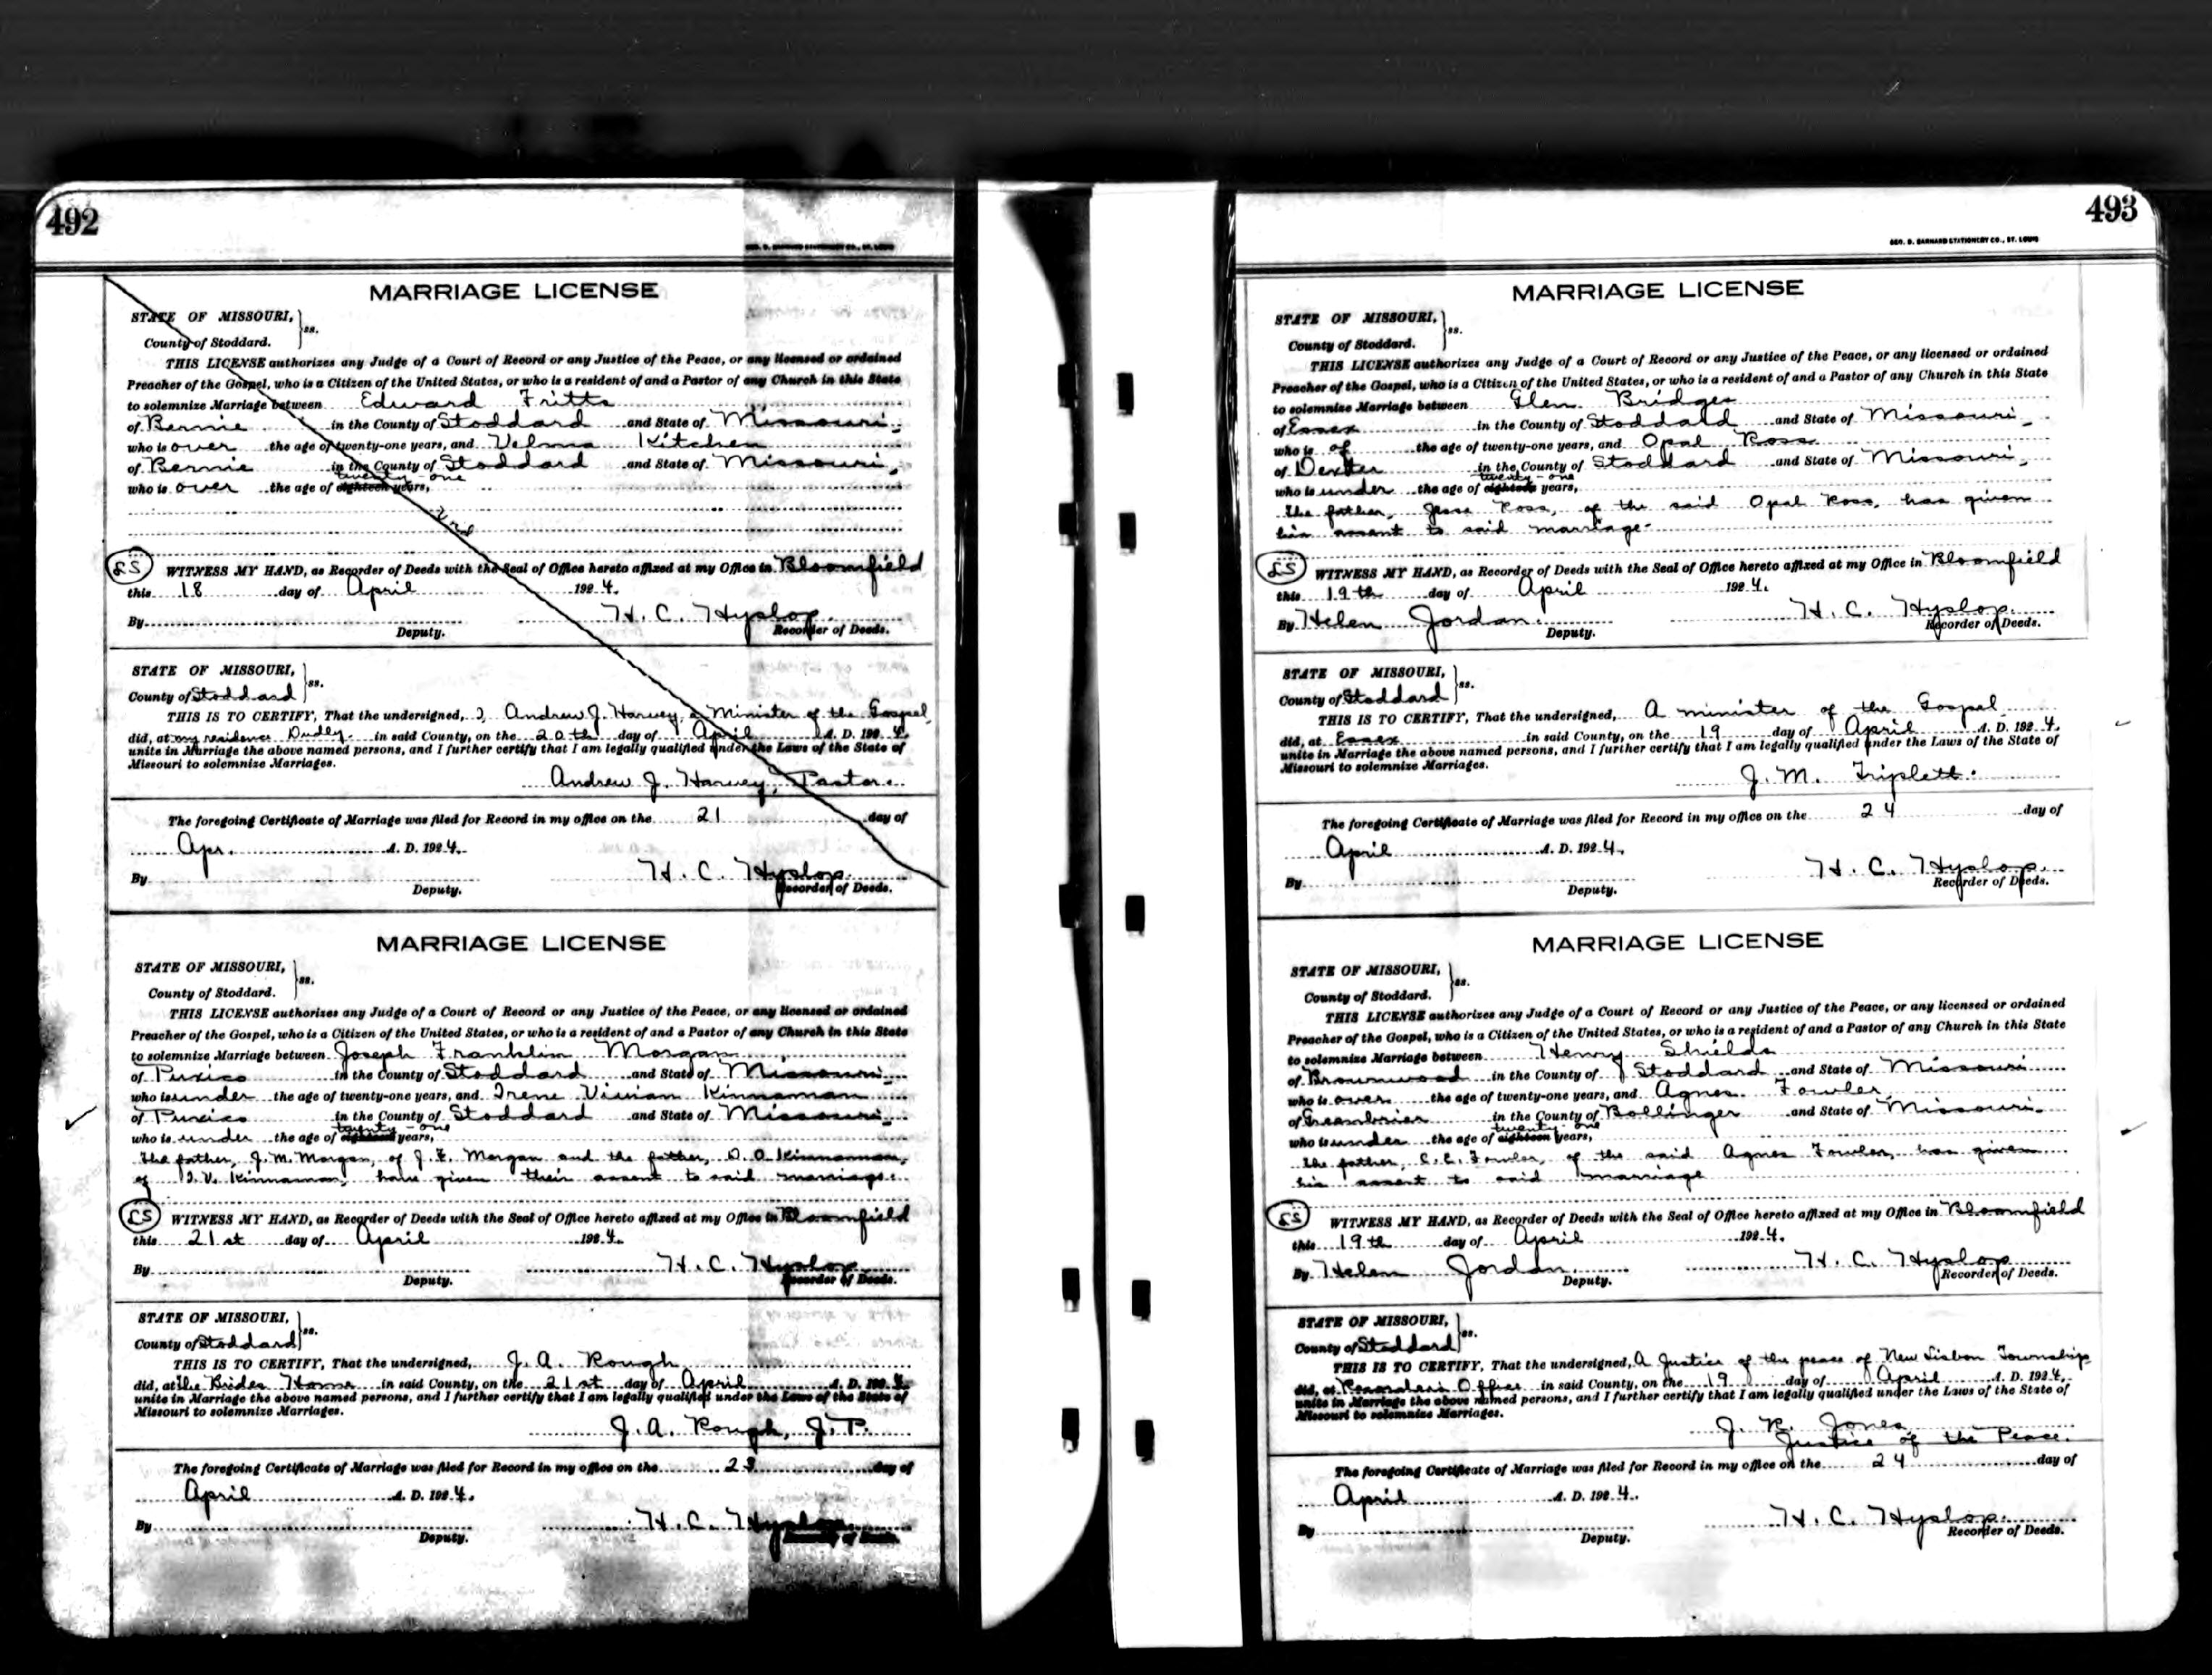 492
GEO. D. BARNARD STATIONERY CO., ST. LOUIS
MARRIAGE LICENSE
STATE OF MISSOURI,
ss.
County of Stoddard.
THIS LICENSE authorizes any Judge of a Court of Record or any Justice of the Peace, or any licensed or ordained
Preacher of the Gospel, who is a Citizen of the United States, or who is a resident of and a Pastor of any Church in this State
to solemnize Marriage between Edward Fritts
of Bernie in the County of Stoddard and State of Missouri,
who is over the age of twenty-one years, and Velma Kitchen
of Bernie in the County of Stoddard and State of Missouri,
twenty-one
who is over the age of eighteen years,
LS WITNESS MY HAND, as Recorder of Deeds with the Seal of Office hereto affixed at my Office in Bloomfield
this 18 day of April 1924.
By H. C. Hyslop.
Deputy. Recorder of Deeds.
STATE OF MISSOURI,
ss.
County of Stoddard
THIS IS TO CERTIFY, That the undersigned, I, Andrew J. Harvey, a Minister of the Gospel,
did, at my residence Dudley in said County, on the 20th day of April A. D. 1924.
unite in Marriage the above named persons, and I further certify that I am legally qualified under the Laws of the State of
Missouri to solemnize Marriages.
Andrew J. Harvey, Pastor.
The foregoing Certificate of Marriage was filed for Record in my office on the 21 day of
Apr. A. D. 1924.
By H. C. Hyslop.
Deputy. Recorder of Deeds.
MARRIAGE LICENSE
STATE OF MISSOURI,
ss.
County of Stoddard.
THIS LICENSE authorizes any Judge of a Court of Record or any Justice of the Peace, or any licensed or ordained
Preacher of the Gospel, who is a Citizen of the United States, or who is a resident of and a Pastor of any Church in this State
to solemnize Marriage between Joseph Franklin Morgan
of Puxico in the County of Stoddard and State of Missouri
who is under the age of twenty-one years, and Irene Vivian Kinnaman
of Puxico in the County of Stoddard and State of Missouri
twenty-one
who is under the age of eighteen years,
The father, J. M. Morgan, of J. F. Morgan and the father, D. O. Kinnaman,
of I. V. Kinnaman, have given their assent to said marriage.
LS WITNESS MY HAND, as Recorder of Deeds with the Seal of Office hereto affixed at my Office in Bloomfield
this 21st day of April 1924.
By H. C. Hyslop
Deputy. Recorder of Deeds.
STATE OF MISSOURI,
ss.
County of Stoddard
THIS IS TO CERTIFY, That the undersigned, J. A. Rough
did, at The Brides Home in said County, on the 21st day of April A. D. 1924.
unite in Marriage the above named persons, and I further certify that I am legally qualified under the Laws of the State of
Missouri to solemnize Marriages.
J. A. Rough, J. P.
The foregoing Certificate of Marriage was filed for Record in my office on the 23 day of
April A. D. 1924.
By H. C. Hyslop
Deputy. Recorder of Deeds.
493
GEO. D. BARNARD STATIONERY CO., ST. LOUIS
MARRIAGE LICENSE
STATE OF MISSOURI,
ss.
County of Stoddard.
THIS LICENSE authorizes any Judge of a Court of Record or any Justice of the Peace, or any licensed or ordained
Preacher of the Gospel, who is a Citizen of the United States, or who is a resident of and a Pastor of any Church in this State
to solemnize Marriage between Glen Bridges
of Essex in the County of Stoddard and State of Missouri
who is of the age of twenty-one years, and Opal Ross
of Dexter in the County of Stoddard and State of Missouri,
twenty-one
who is under the age of eighteen years,
The father, Jesse Ross, of the said Opal Ross, has given
his assent to said marriage.
LS WITNESS MY HAND, as Recorder of Deeds with the Seal of Office hereto affixed at my Office in Bloomfield
this 19th day of April 1924.
By Helen Jordan. H. C. Hyslop.
Deputy. Recorder of Deeds.
STATE OF MISSOURI,
ss.
County of Stoddard
THIS IS TO CERTIFY, That the undersigned, A minister of the Gospel
did, at Essex in said County, on the 19 day of April A. D. 1924.
unite in Marriage the above named persons, and I further certify that I am legally qualified under the Laws of the State of
Missouri to solemnize Marriages.
J. M. Triplett.
The foregoing Certificate of Marriage was filed for Record in my office on the 24 day of
April A. D. 1924.
By H. C. Hyslop.
Deputy. Recorder of Deeds.
MARRIAGE LICENSE
STATE OF MISSOURI,
ss.
County of Stoddard.
THIS LICENSE authorizes any Judge of a Court of Record or any Justice of the Peace, or any licensed or ordained
Preacher of the Gospel, who is a Citizen of the United States, or who is a resident of and a Pastor of any Church in this State
to solemnize Marriage between Henry Shields
of Brownwood in the County of Stoddard and State of Missouri
who is over the age of twenty-one years, and Agnes Fowler
of Greenbrier in the County of Bollinger and State of Missouri.
twenty-one
who is under the age of eighteen years,
The father, C. E. Fowler, of the said Agnes Fowler, has given
his assent to said marriage
LS WITNESS MY HAND, as Recorder of Deeds with the Seal of Office hereto affixed at my Office in Bloomfield
this 19th day of April 1924.
By Helen Jordan. H. C. Hyslop
Deputy. Recorder of Deeds.
STATE OF MISSOURI,
ss.
County of Stoddard
THIS IS TO CERTIFY, That the undersigned, A Justice of the peace of New Lisbon Township
did, at Recorders Office in said County, on the 19 day of April A. D. 1924.
unite in Marriage the above named persons, and I further certify that I am legally qualified under the Laws of the State of
Missouri to solemnize Marriages.
J. R. Jones
Justice of the Peace.
The foregoing Certificate of Marriage was filed for Record in my office on the 24 day of
April A. D. 1924.
By H. C. Hyslop.
Deputy. Recorder of Deeds.